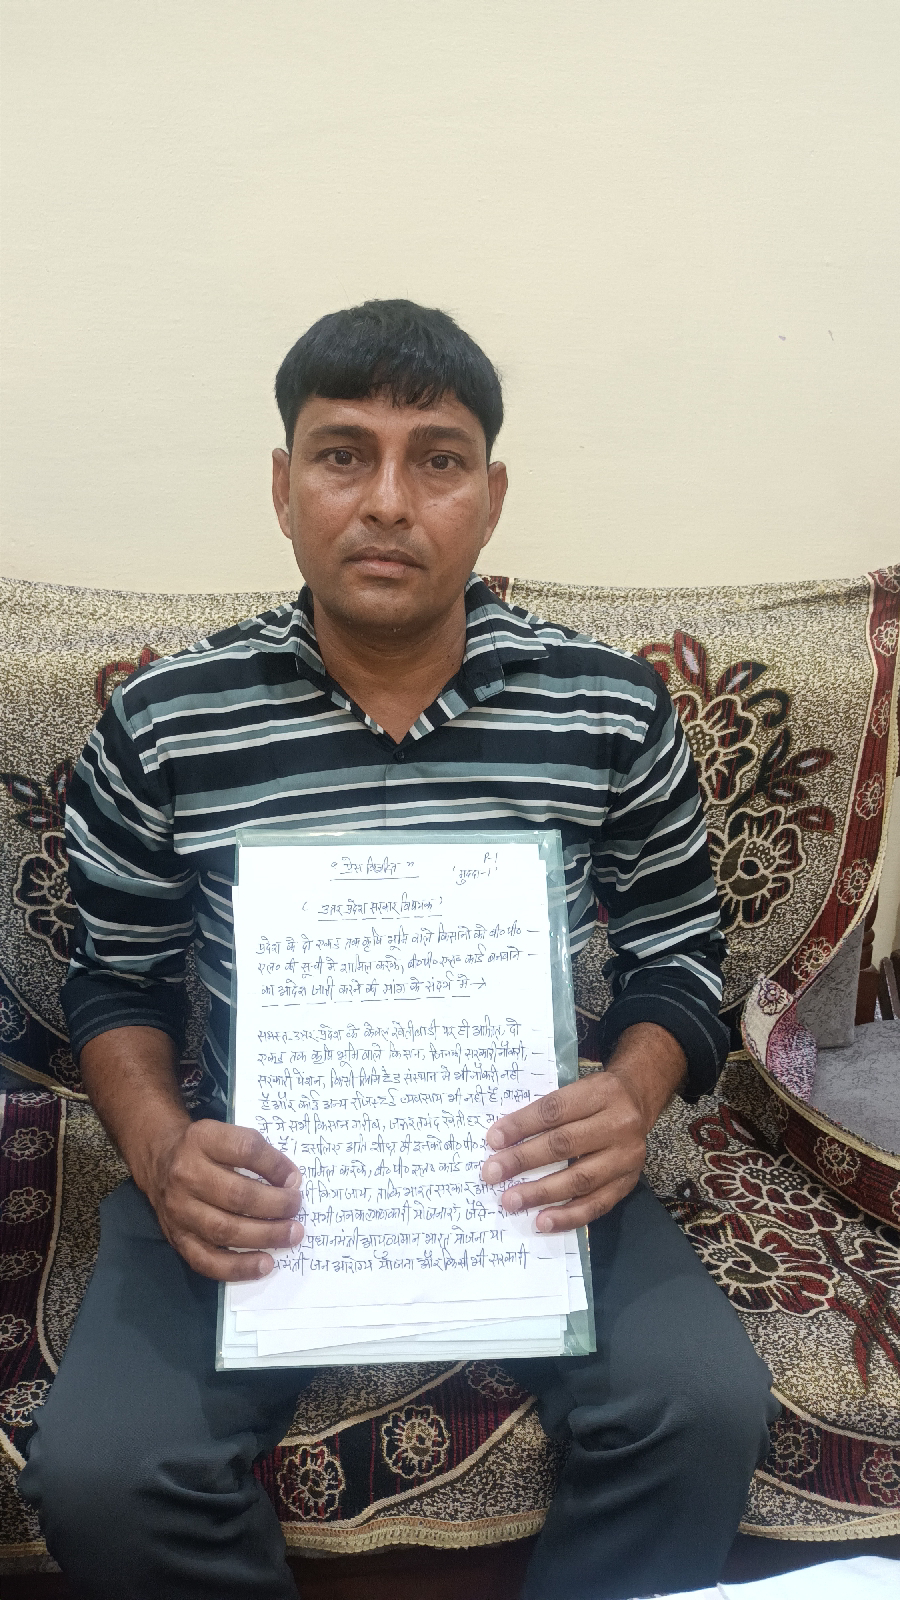 " प्रेस विज्ञप्ति "
P.1
' मुद्दा-1 '
( उत्तर प्रदेश सरकार विषयक )
प्रदेश के दो एकड़ तक कृषि भूमि वाले किसानों को बी०पी०
एल० की सूची में शामिल करके, बी०पी०एल० कार्ड बनवाने
का आदेश जारी करने की मांग के संदर्भ में →
समस्त उत्तर प्रदेश के केवल खेतीबाड़ी पर ही आश्रित, दो
एकड़ तक कृषि भूमि वाले किसान, जिनकी सरकारी नौकरी,
सरकारी पेंशन, किसी लिमिटेड संस्थान में भी नौकरी नहीं
है और कोई अन्य रजिस्टर्ड व्यवसाय भी नहीं है, वास्तव
में ये सभी किसान गरीब, जरूरतमंद खेतीहर
हैं। इसलिए अति शीघ्र ही इनको बी०पी०
शामिल करके, बी०पी०एल० कार्ड
किया जाय, ताकि भारत सरकार और प्रदेश
सभी जनकल्याणकारी योजनाएं, जैसे-
प्रधानमंत्री आयुष्यमान भारत योजना या
जन आरोग्य योजना और किसी भी सरकारी